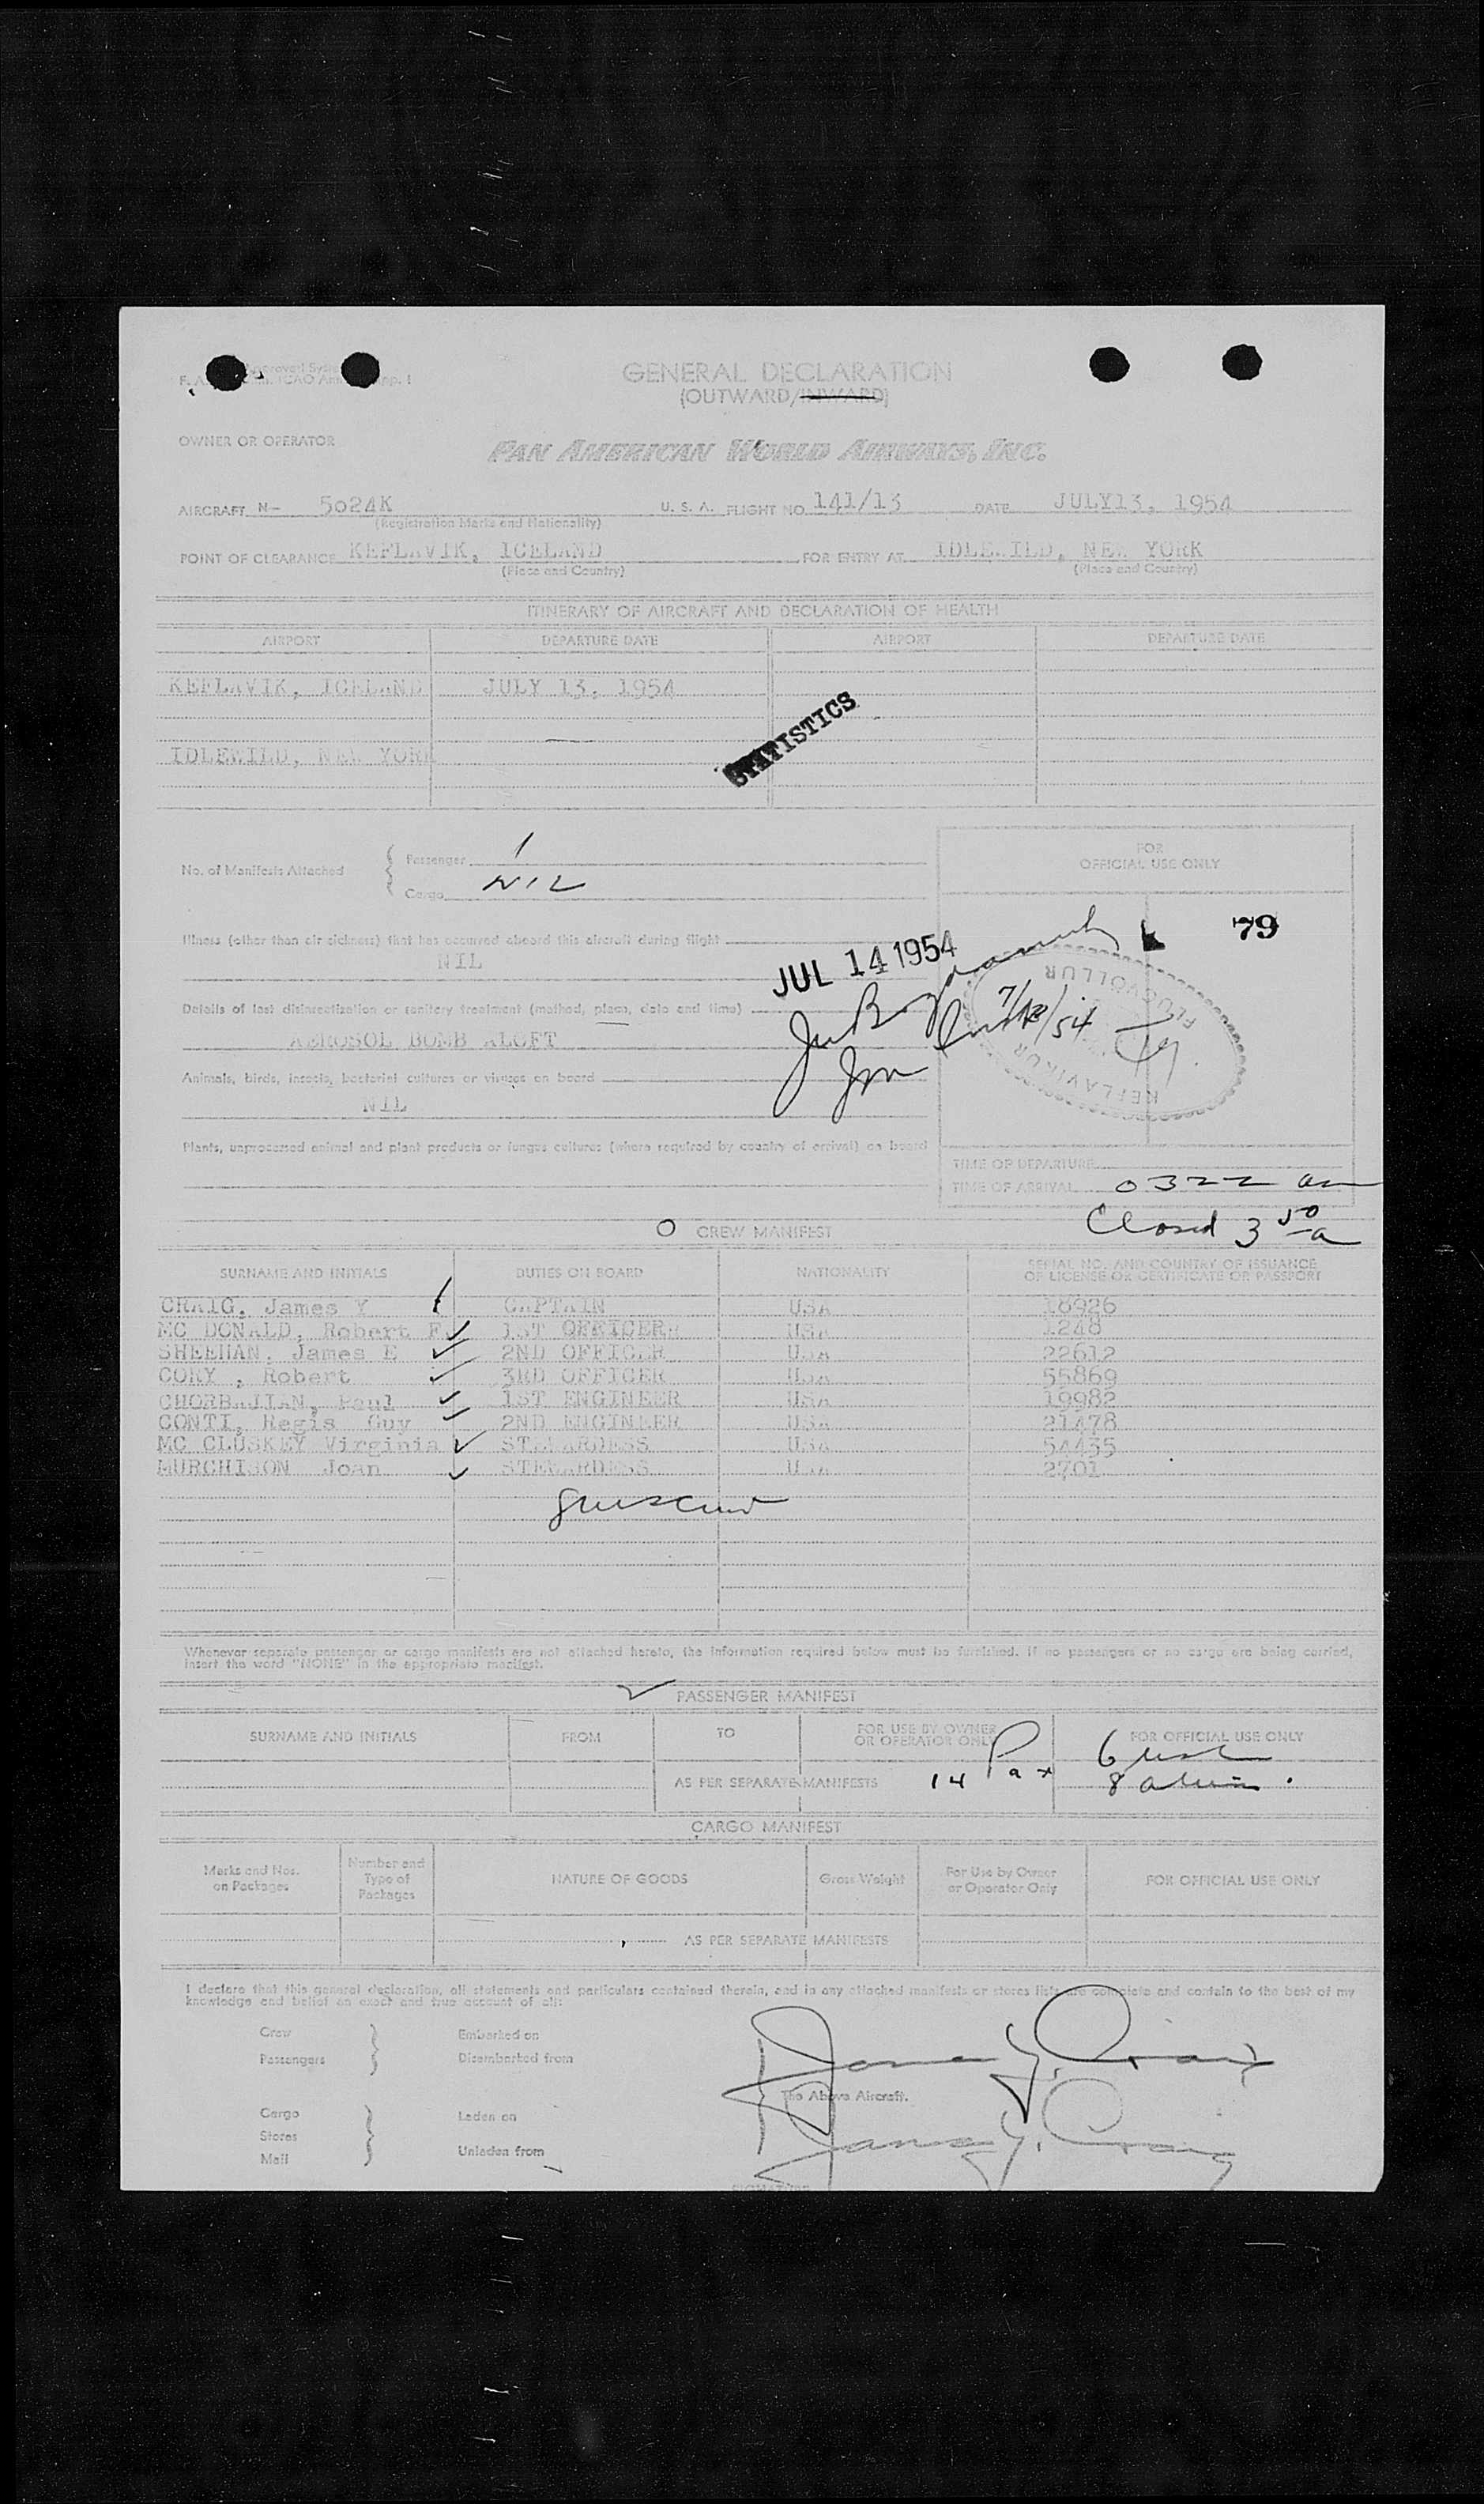 GENERAL DECLARATION
(OUTWARD/INWARD)
OWNER OR OPERATOR PAN AMERICAN WORLD AIRWAYS, INC.
AIRCRAFT N- 5024K U. S. A. FLIGHT NO. 141/13 DATE JULY13, 1954
(Registration Marks and Nationality)
POINT OF CLEARANCE KEFLAVIK, ICELAND FOR ENTRY AT IDLEWILD, NEW YORK
(Place and Country) (Place and Country)
ITINERARY OF AIRCRAFT AND DECLARATION OF HEALTH
AIRPORT DEPARTURE DATE AIRPORT DEPARTURE DATE
KEFLAVIK, ICELAND JULY 13, 1954
STATISTICS
IDLEWILD, NEW YORK
FOR
OFFICIAL USE ONLY
No. of Manifests Attached { Passenger 1
Cargo NIL
79
Illness (other than air sickness) that has occurred aboard this aircraft during flight
NIL
JUL 14 1954
Details of last disinsectization or sanitary treatment (method, place, date and time)
AEROSOL BOMB ALOFT
7/13/54
KEFLAVIKUR FLUGVOLLUR
Animals, birds, insects, bacterial cultures or viruses on board
NIL
Plants, unprocessed animal and plant products or fungus cultures (where required by country of arrival) on board
TIME OF DEPARTURE
TIME OF ARRIVAL 0322 am
Closed 3 50 a
CREW MANIFEST
SURNAME AND INITIALS DUTIES ON BOARD NATIONALITY SERIAL NO. AND COUNTRY OF ISSUANCE
OF LICENSE OR CERTIFICATE OR PASSPORT
CRAIG, James Y CAPTAIN USA 16926
MC DONALD, Robert F. 1ST OFFICER USA 1248
SHEEHAN, James E 2ND OFFICER USA 22612
CORY , Robert 3RD OFFICER USA 55869
CHORBAJIAN, Paul 1ST ENGINEER USA 19982
CONTI, Regis Guy 2ND ENGINEER USA 21478
MC CLUSKEY Virginia STEWARDESS USA 54435
MURCHISON Joan STEWARDESS USA 2701
Whenever separate passenger or cargo manifests are not attached hereto, the information required below must be furnished. If no passengers or no cargo are being carried,
insert the word "NONE" in the appropriate manifest.
PASSENGER MANIFEST
SURNAME AND INITIALS FROM TO FOR USE BY OWNER
OR OPERATOR ONLY FOR OFFICIAL USE ONLY
AS PER SEPARATE MANIFESTS 14 Pax
CARGO MANIFEST
Marks and Nos.
on Packages Number and
Type of
Packages NATURE OF GOODS Gross Weight For Use by Owner
or Operator Only FOR OFFICIAL USE ONLY
AS PER SEPARATE MANIFESTS
I declare that this general declaration, all statements and particulars contained therein, and in any attached manifests or stores lists are complete and contain to the best of my
knowledge and belief an exact and true account of all:
Crew Embarked on
Passengers Disembarked from
James Y. Craig
The Above Aircraft.
Cargo Laden on
Stores
Mail Unladen from
James Y. Craig
SIGNATURE